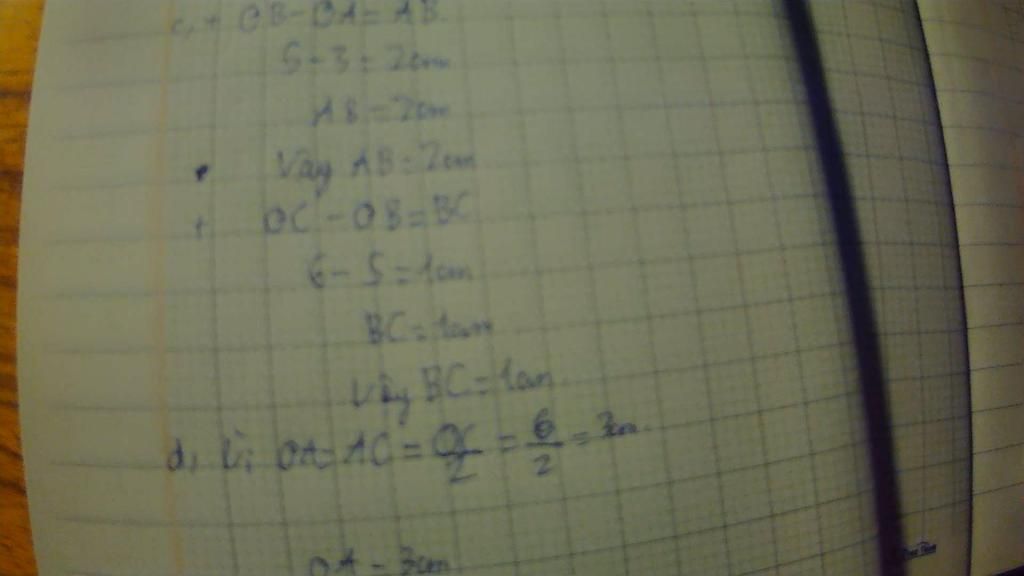 c, + OB - OA = AB
5 - 3 = 2cm
AB = 2cm
Vậy AB = 2cm
+ OC - OB = BC
6 - 5 = 1cm
BC = 1cm
Vậy BC = 1cm
d, Vì OA = AC = OC/2 = 6/2 = 3cm
OA = 3cm